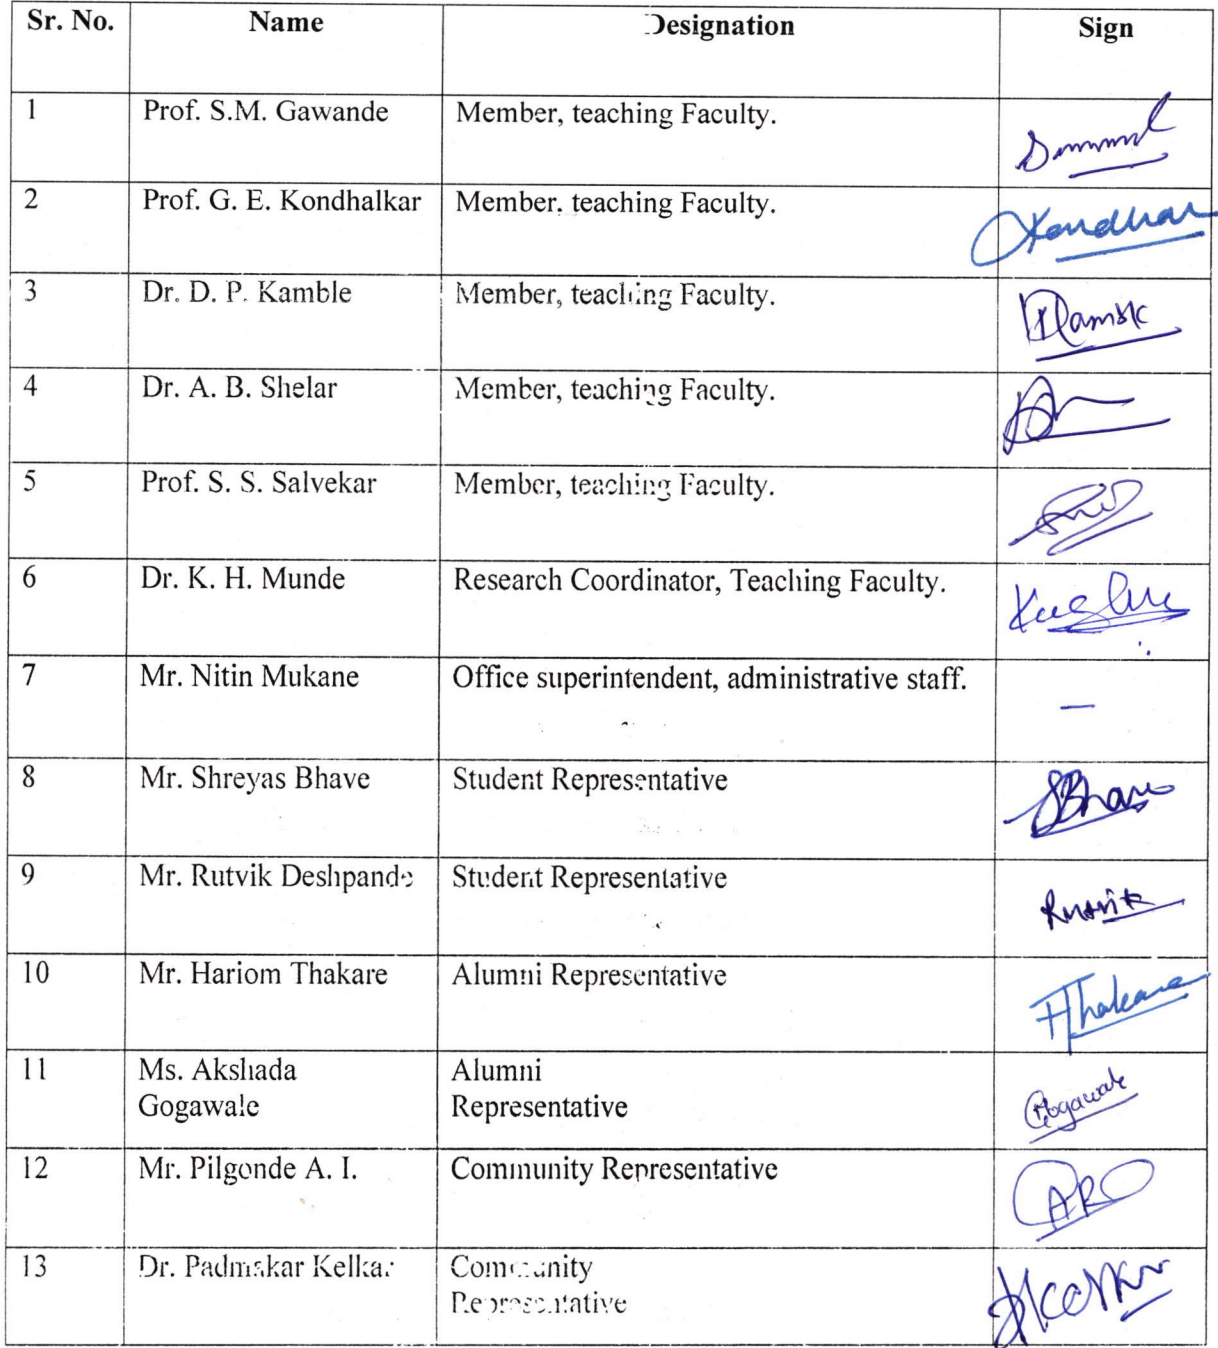 Sr. No. Name Designation Sign
1 Prof. S.M. Gawande Member, teaching Faculty.
2 Prof. G. E. Kondhalkar Member, teaching Faculty.
3 Dr. D. P. Kamble Member, teaching Faculty.
4 Dr. A. B. Shelar Member, teaching Faculty.
5 Prof. S. S. Salvekar Member, teaching Faculty.
6 Dr. K. H. Munde Research Coordinator, Teaching Faculty.
7 Mr. Nitin Mukane Office superintendent, administrative staff. —
8 Mr. Shreyas Bhave Student Representative SBhave
9 Mr. Rutvik Deshpande Student Representative Rutvik
10 Mr. Hariom Thakare Alumni Representative HThakare
11 Ms. Akshada Alumni
Gogawale Representative Gogawale
12 Mr. Pilgonde A. I. Community Representative
13 Dr. Padmakar Kelkar Community
Representative